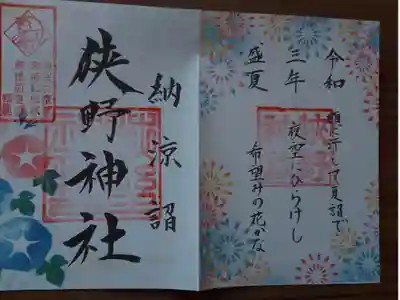 令和
三年
盛夏
して夏詣で
夜空にひらけし
希望みの花かな
納涼詣
狭野神社